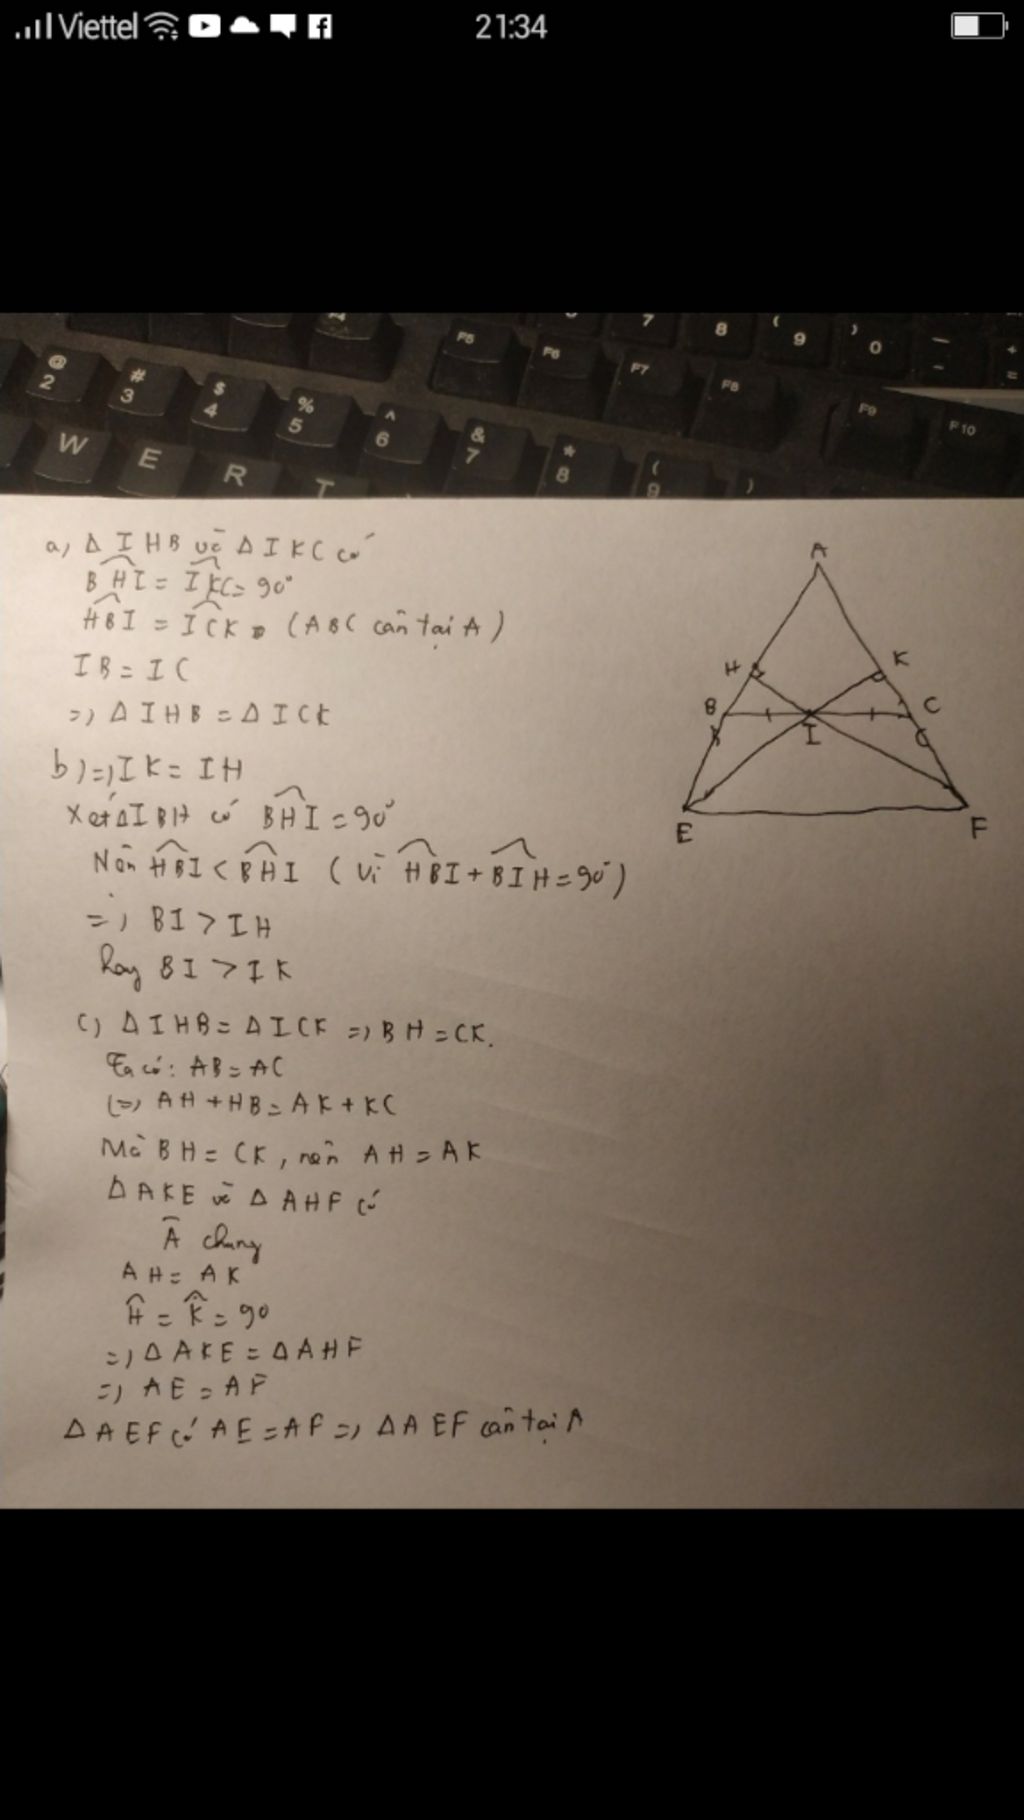 Viettel 21:34
F4 F5 F6 F7 F8 F9 F10
@ 2 # 3 $ 4 % 5 ^ 6 & 7 * 8 ( 9 )
7 8 ( 9 ) 0 — - + =
W E R T
a, Δ IHB và Δ IKC có
BHI = IKC = 90°
HBI = ICK (ABC cân tại A)
IB = IC
=> Δ IHB = Δ ICK
b) => IK = IH
Xét Δ IBH có BHI = 90°
Nên HBI < BHI (Vì HBI + BIH = 90°)
=> BI > IH
hay BI > IK
c) Δ IHB = Δ ICK => BH = CK.
Ta có: AB = AC
(=> AH + HB = AK + KC
Mà BH = CK, nên AH = AK
Δ AKE và Δ AHF có
Â chung
AH = AK
Ĥ = K̂ = 90
=> Δ AKE = Δ AHF
=> AE = AF
Δ AEF có AE = AF => Δ AEF cân tại A
A
H K
B I C
E F